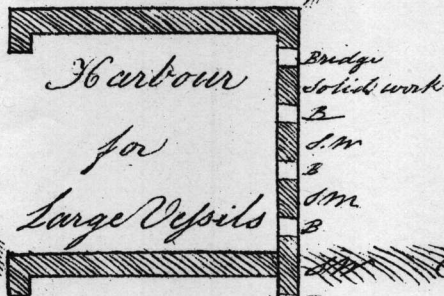 Harbour
for
Large Vessils
Bridge
Solid work
B
S.W
B
S.W
B
S.W